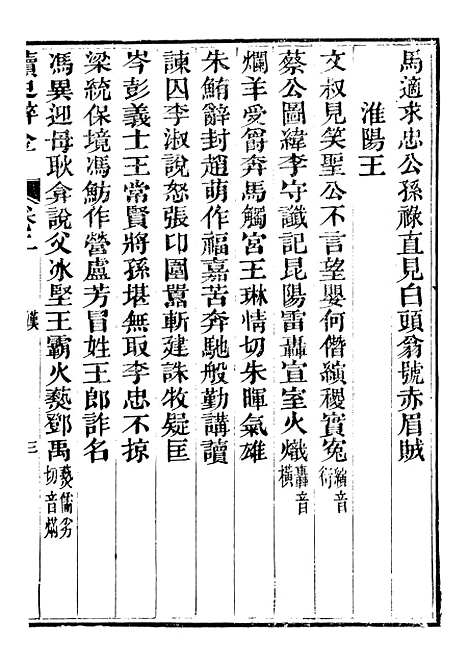 馬適求忠公孫祿直見白頭翁號赤眉賊
淮陽王
文叔見笑聖公不言望嬰何僭縯稷實冤縯音衍
蔡公圖緯李守讖記昆陽雷轟宣室火熾轟音橫
爛羊受爵奔馬觸宮王琳情切朱暉氣雄
朱鮪辭封趙萌作福嘉苦奔馳般勤講讀
諫囚李淑說怒張印圍囂斬建誅牧疑匡
岑彭義士王常賢將孫堪無取李忠不掠
梁統保境馮魴作營盧芳冒姓王郎詐名
馮異迎母耿弇說父冰堅王霸火爇鄧禹爇儒劣切音焫
讀史碎金 卷二 漢 三